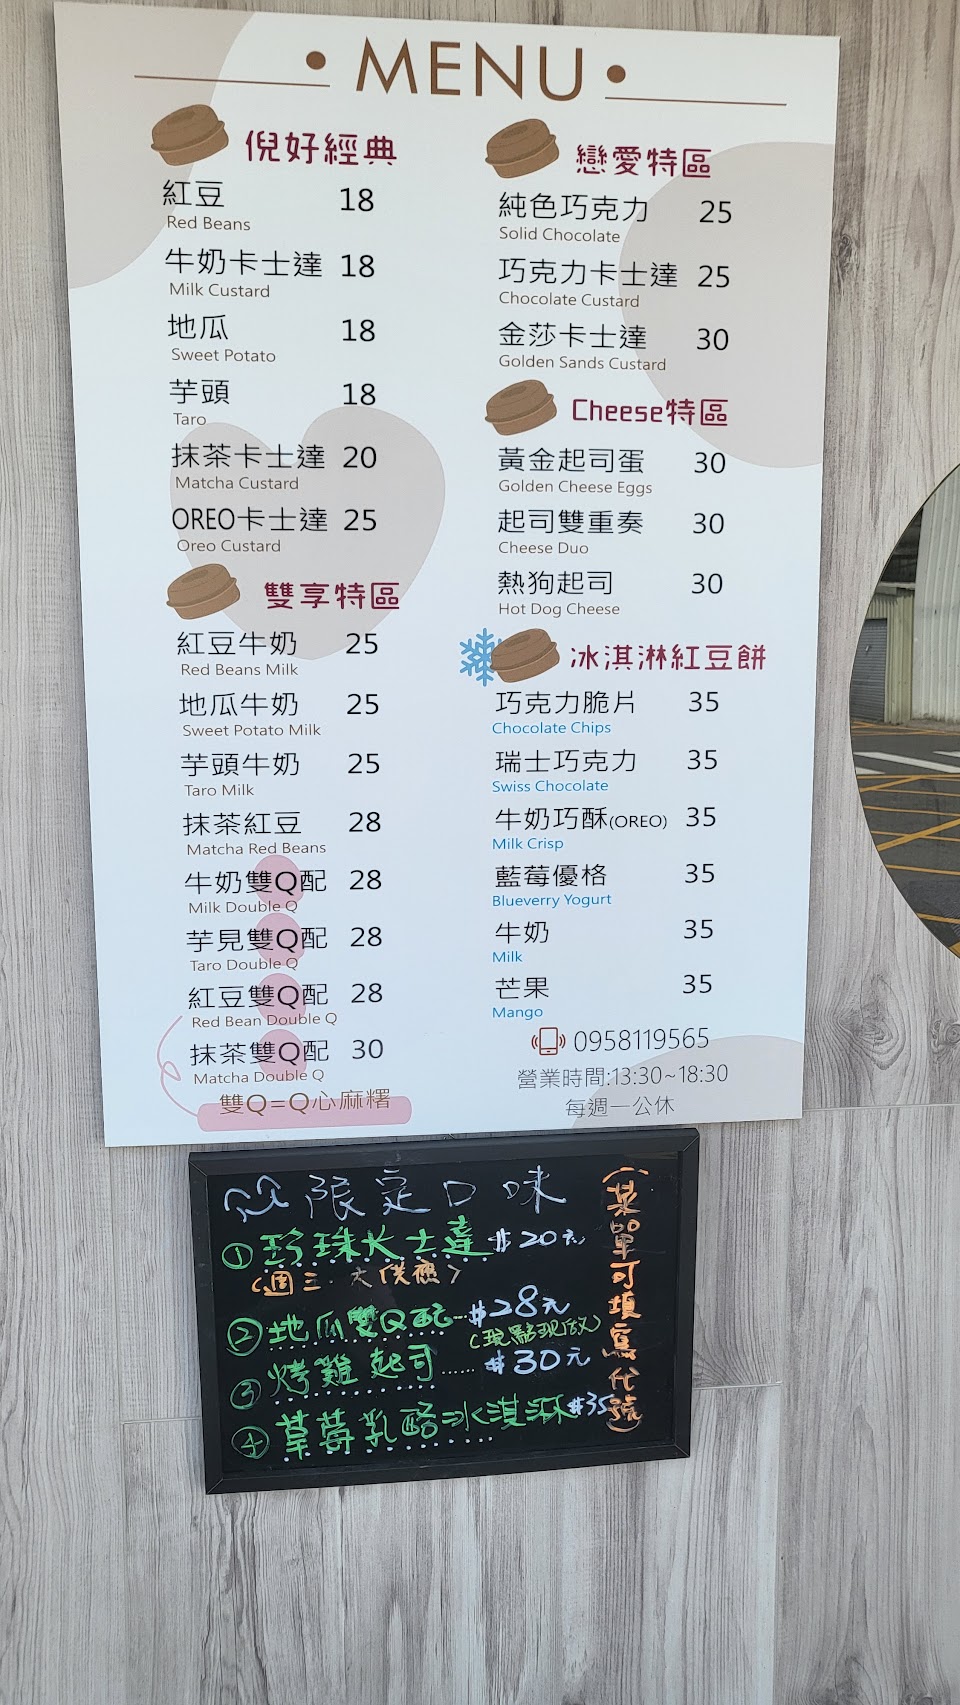 MENU
倪好經典
紅豆 18
Red Beans
牛奶卡士達 18
Milk Custard
地瓜 18
Sweet Potato
芋頭 18
Taro
抹茶卡士達 20
Matcha Custard
OREO卡士達 25
Oreo Custard
雙享特區
紅豆牛奶 25
Red Beans Milk
地瓜牛奶 25
Sweet Potato Milk
芋頭牛奶 25
Taro Milk
抹茶紅豆 28
Matcha Red Beans
牛奶雙Q配 28
Milk Double Q
芋見雙Q配 28
Taro Double Q
紅豆雙Q配 28
Red Bean Double Q
抹茶雙Q配 30
Matcha Double Q
雙Q=Q心麻糬
戀愛特區
純色巧克力 25
Solid Chocolate
巧克力卡士達 25
Chocolate Custard
金莎卡士達 30
Golden Sands Custard
Cheese特區
黃金起司蛋 30
Golden Cheese Eggs
起司雙重奏 30
Cheese Duo
熱狗起司 30
Hot Dog Cheese
冰淇淋紅豆餅
巧克力脆片 35
Chocolate Chips
瑞士巧克力 35
Swiss Chocolate
牛奶巧酥(OREO) 35
Milk Crisp
藍莓優格 35
Blueverry Yogurt
牛奶 35
Milk
芒果 35
Mango
0958119565
營業時間:13:30~18:30
每週一公休
限定口味
①珍珠卡士達$20元
(週三.六供應)
②地瓜雙Q配...$28元
(現點現做)
③烤雞起司......$30元
④草莓乳酪冰淇淋$35
(菜單可填寫代號)